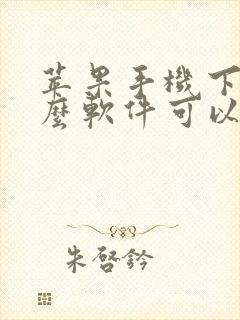 苹果手機下
麼軟件可以
朱啓鈐